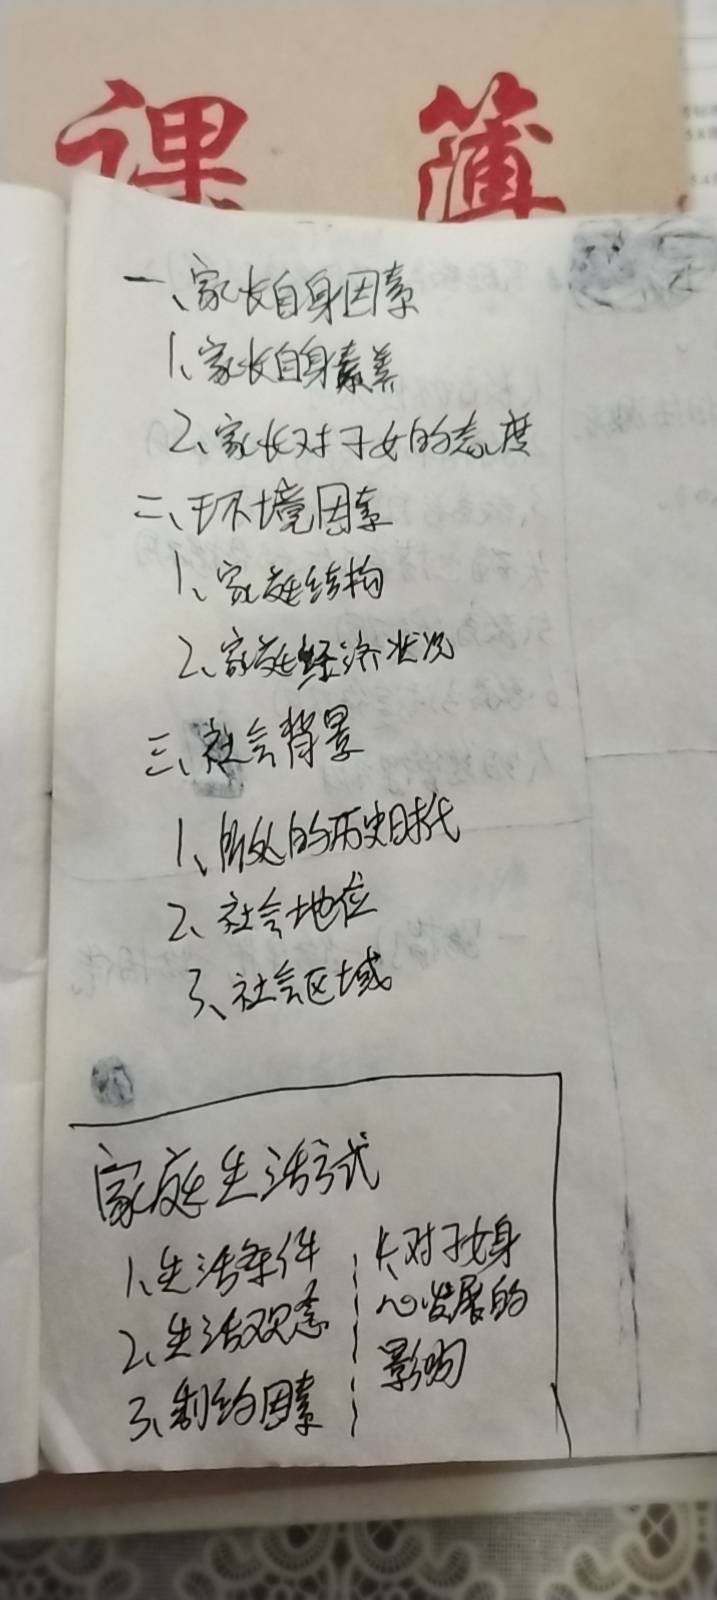 课 薄
一、家长自身因素
1、家长自身素养
2、家长对子女的态度
二、环境因素
1、家庭结构
2、家庭经济状况
三、社会背景
1、所处的历史时代
2、社会地位
3、社会区域
家庭生活方式
1、生活条件
2、生活观念
3、制约因素
1、对子女身
心发展的
影响